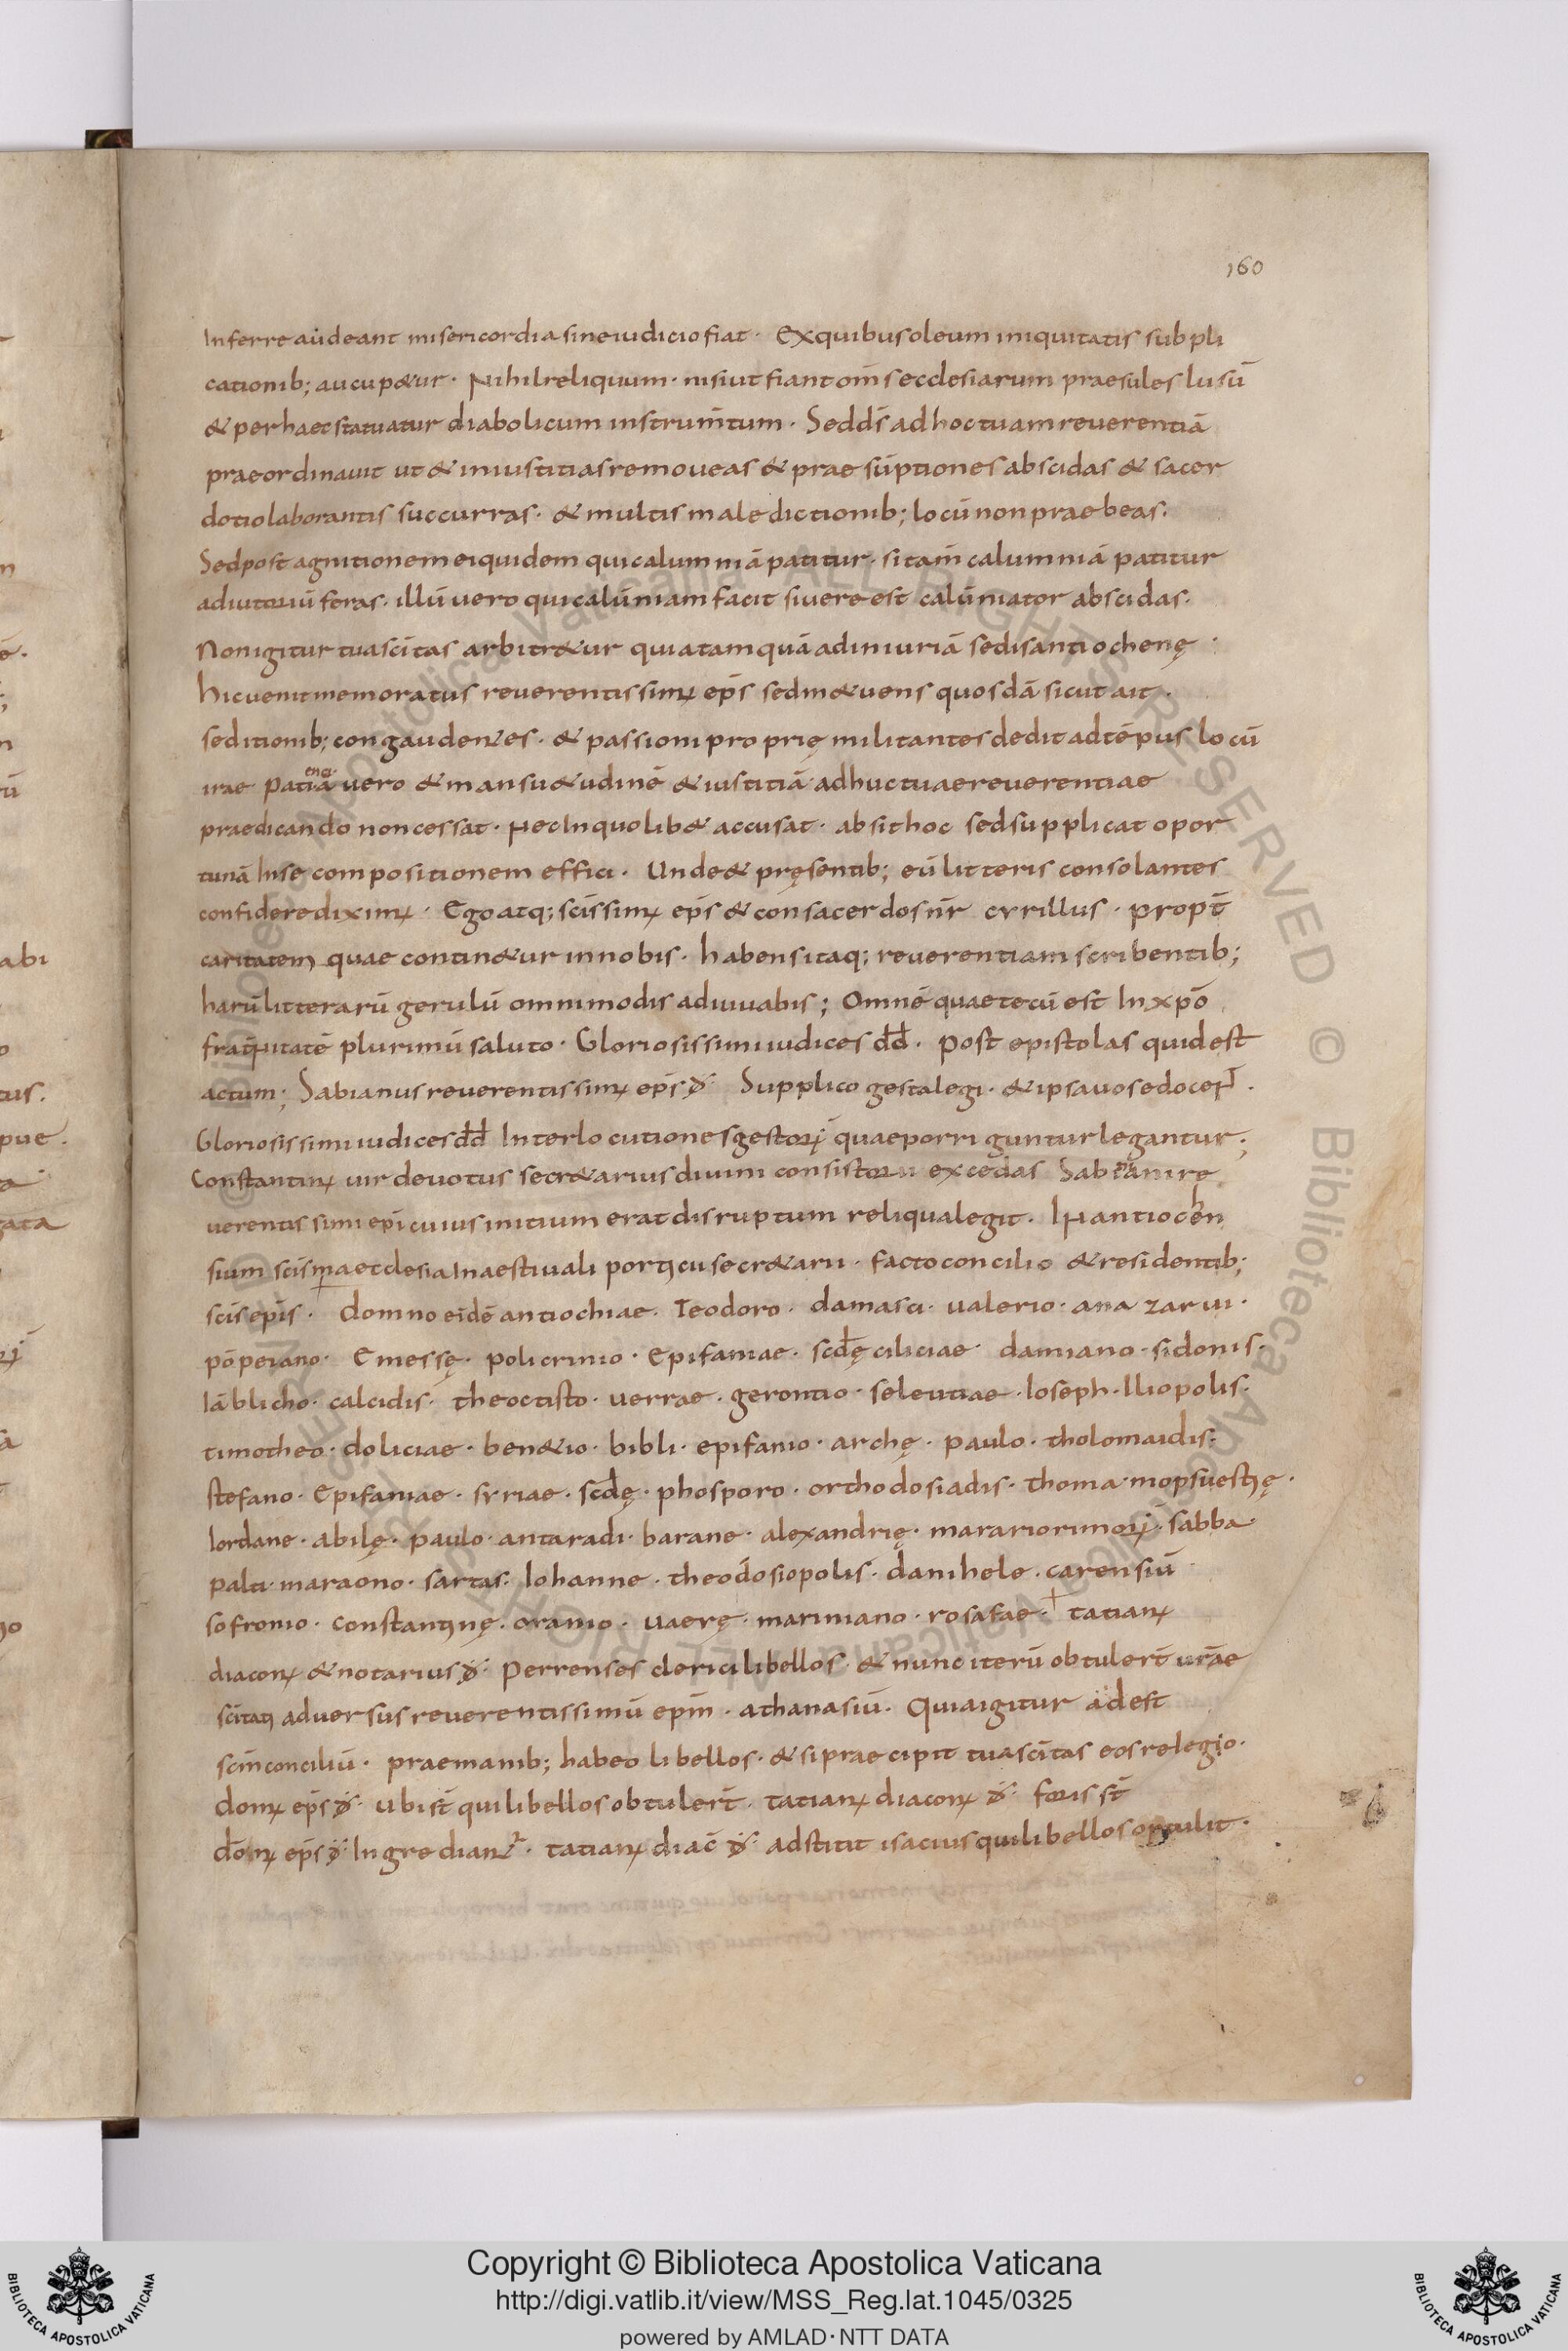 160
Inferre audeant misericordia sineiudiciofiat · Exquibusoleum iniquitatis subpli
cationib; aucup&ur · Nihilreliquum · nisiut fiant om̄s ecclesiarum praesules lusū
& perhaecstatuatur diabolicum instrum̄tum · Sedds̄ adhoctuamreuerentiā
praeordinauit ut & iniustitiasremoueas & praesūptiones abscidas & sacer
dotiolaborantis succurras · & multis maledictionib; locū nonpraebeas.
Sedpost agnitionem eiquidem quicalumniā patitur · sitam̄ calumniā patitur
adiutoriū feras · illū vero quicalūniam facit siuere est calūniator abscidas.
Nonigitur tuasc̄itas arbitr&ur quiatamquā adiniuriā sedisantiochenę ·
hicuenitmemoratus reuerentissimꝰ ep̄s sedm&uens quosdā sicut ait ·
seditionib; congaudentes · & passioni proprię militantes dedit adtēpus locū
irae patiā uero & mansu&udinē & iustitiā adhuctuaereuerentiae
ene
praedicando noncessat · Necinquolib& accusat · absithoc sedsupplicat opor
tunā Inse compositionem effici · Unde& pręsentib; eū litteris consolantes
confiderediximꝰ · Egoatq; sc̄issimꝰ ep̄s & consacerdos nr̄ cyrillus · propt̄
caritatem quae contin&ur innobis · habensitaq; reuerentiam scribentib;
harū litterarū gerulū omnimodis adiuuabis; Omnē quaetecū est In xp̄o
fraternitatē plurimū saluto · Gloriosissimi iudices dd̄ · Post epistolas quidest
actum; Sabianus reuerentissimꝰ ep̄s d̄ · Supplico gestalegi · & ipsauosedocent ·
Gloriosissimi iudices dd̄ Interlocutiones gestorꝝ quaeporriguntur legantur;
Constantinꝰ uir deuotus secr&arius diuini consistorii excedas Sabiani re
uerentissimi ep̄i cuius initium erat disruptum reliqualegit · In antiochen
sium sc̄issima ecclesia Inaestiuali porticu secr&arii · facto concilio & residentib;
sc̄is ep̄is · domno eidē antiochiae · Teodoro · damasci · ualerio · anazarui ·
pōpeiano · Emessę · policrinio · Epifaniae · scd̄ę ciliciae · damiano · sidonis ·
Iāblicho · calcidis · theoctisto · uerrae · gerontio · seleutiae · Ioseph · Iliopolis ·
timotheo · doliciae · ben&io · bibli · epifanio · archę · paulo · tholomaidis ·
stefano · Epifaniae · syriae · scd̄ę · phosporo · orthodosiadis · thoma · mopsuestię ·
Iordane · abilę · paulo · antaradi · barane · alexandrię · marariorimorꝝ · sabba ·
palti · maraono · sartas · Iohanne · theodosiopolis · danihele · carensiū
sofronio · constantinę · oranio · uaerę · mariniano · rosafae · tatianꝰ
diaconꝰ & notarius d̄ · Perrenses clerici libellos · & nunc iterū obtulert̄ ur̄ae
sc̄itati aduersus reuerentissimū ep̄m · athanasiū · Quiaigitur adest
sc̄m conciliū · praemanib; habeo libellos · & si praecipit tuasc̄itas eos relegio ·
domꝰ ep̄s d̄ · ubi st̄ quilibellos obtulert̄ · tatianꝰ diaconꝰ d̄ · foris st̄
domnꝰ ep̄s d̄ · Ingrediantr̄ · tatianꝰ diac̄ d̄ · adstitit isacius quilibellos optulit ·
© Biblioteca Apostolica Vaticana ALL RIGHTS RESERVED © Biblioteca Apostolica Vaticana ALL RIGHTS RESERVED
Copyright © Biblioteca Apostolica Vaticana
http://digi.vatlib.it/view/MSS_Reg.lat.1045/0325
powered by AMLAD·NTT DATA
BIBLIOTECA APOSTOLICA VATICANA
BIBLIOTECA APOSTOLICA VATICANA